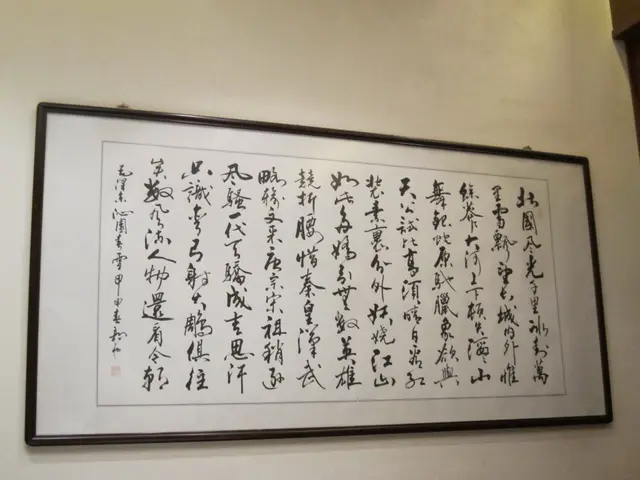 北國风光千里冰封萬
里雪飄望長城內外惟
餘莽莽大河上下頓失滔滔山
舞銀蛇原馳臘象欲與
天公試比高須晴日看紅
裝素裹分外妖嬈江山
如此多嬌引無數英雄
競折腰惜秦皇漢武
略輸文采唐宗宋祖稍遜
风騷一代天驕成吉思汗
只識彎弓射大鵰俱往
矣數风流人物還看今朝
毛澤東沁園春雪甲申春